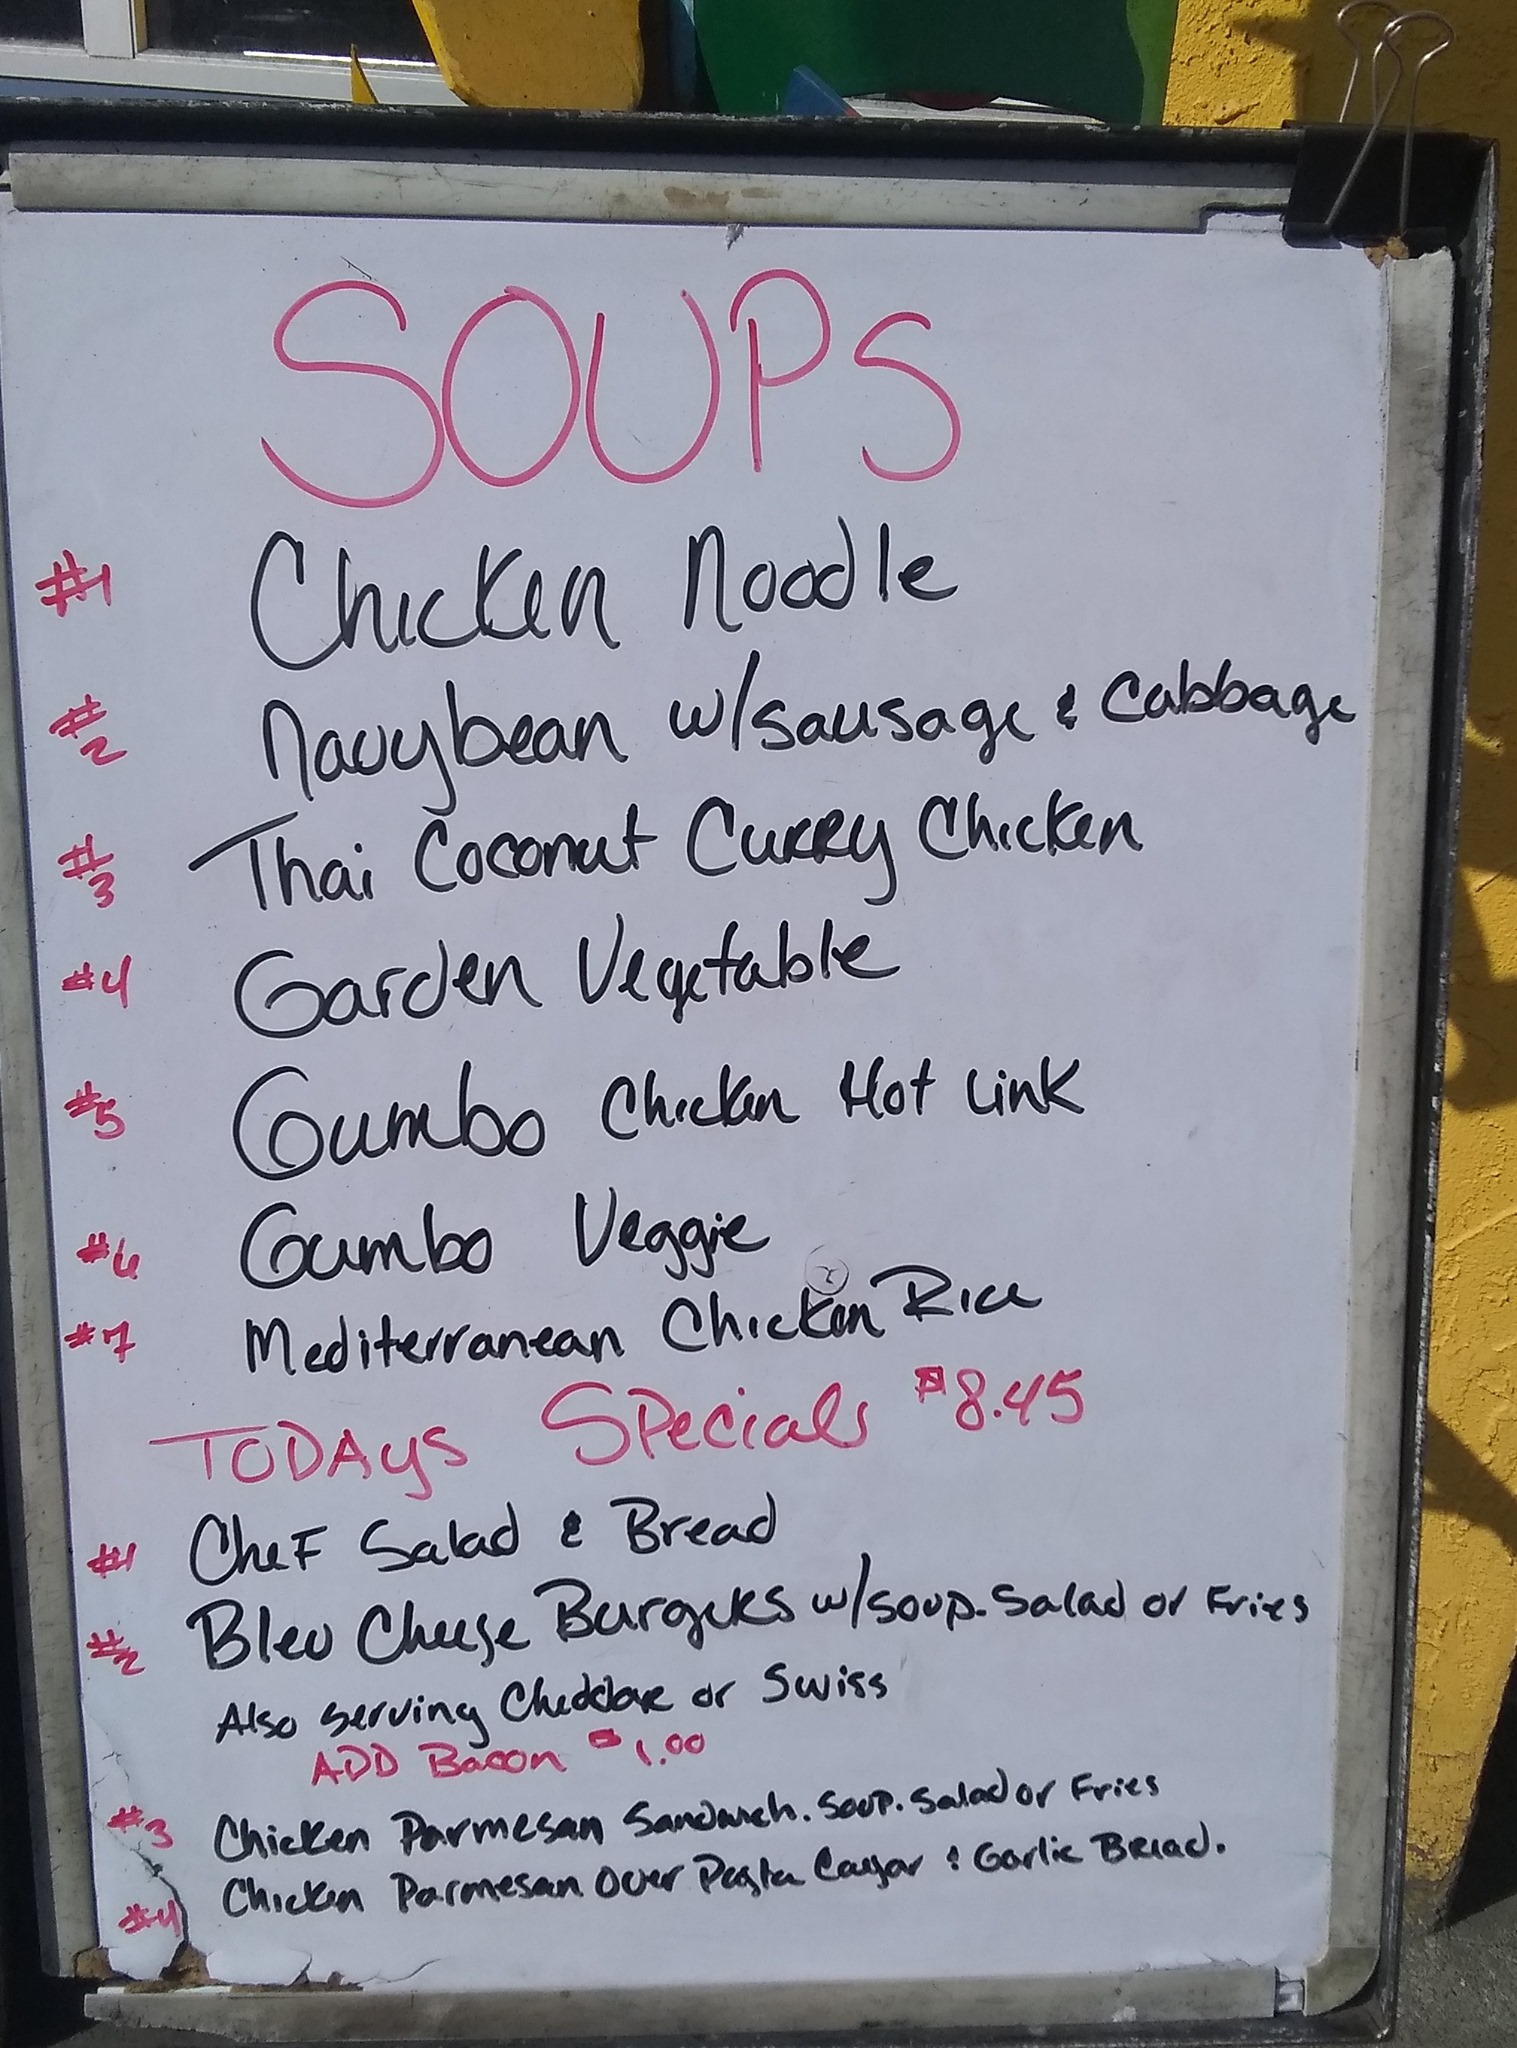 SOUPS
#1 Chicken Noodle
#2 Navybean w/sausage & Cabbage
#3 Thai Coconut Curry Chicken
#4 Garden Vegetable
#5 Gumbo Chicken Hot Link
#6 Gumbo Veggie
#7 Mediterranean Chicken Rice
TODAYS Specials $8.45
#1 Chef Salad & Bread
#2 Bleu Cheese Burgers w/soup. Salad or Fries
Also serving Cheddar or Swiss
ADD Bacon $1.00
#3 Chicken Parmesan Sandwich. Soup. Salad or Fries
#4 Chicken Parmesan Over Pasta Caesar & Garlic Bread.